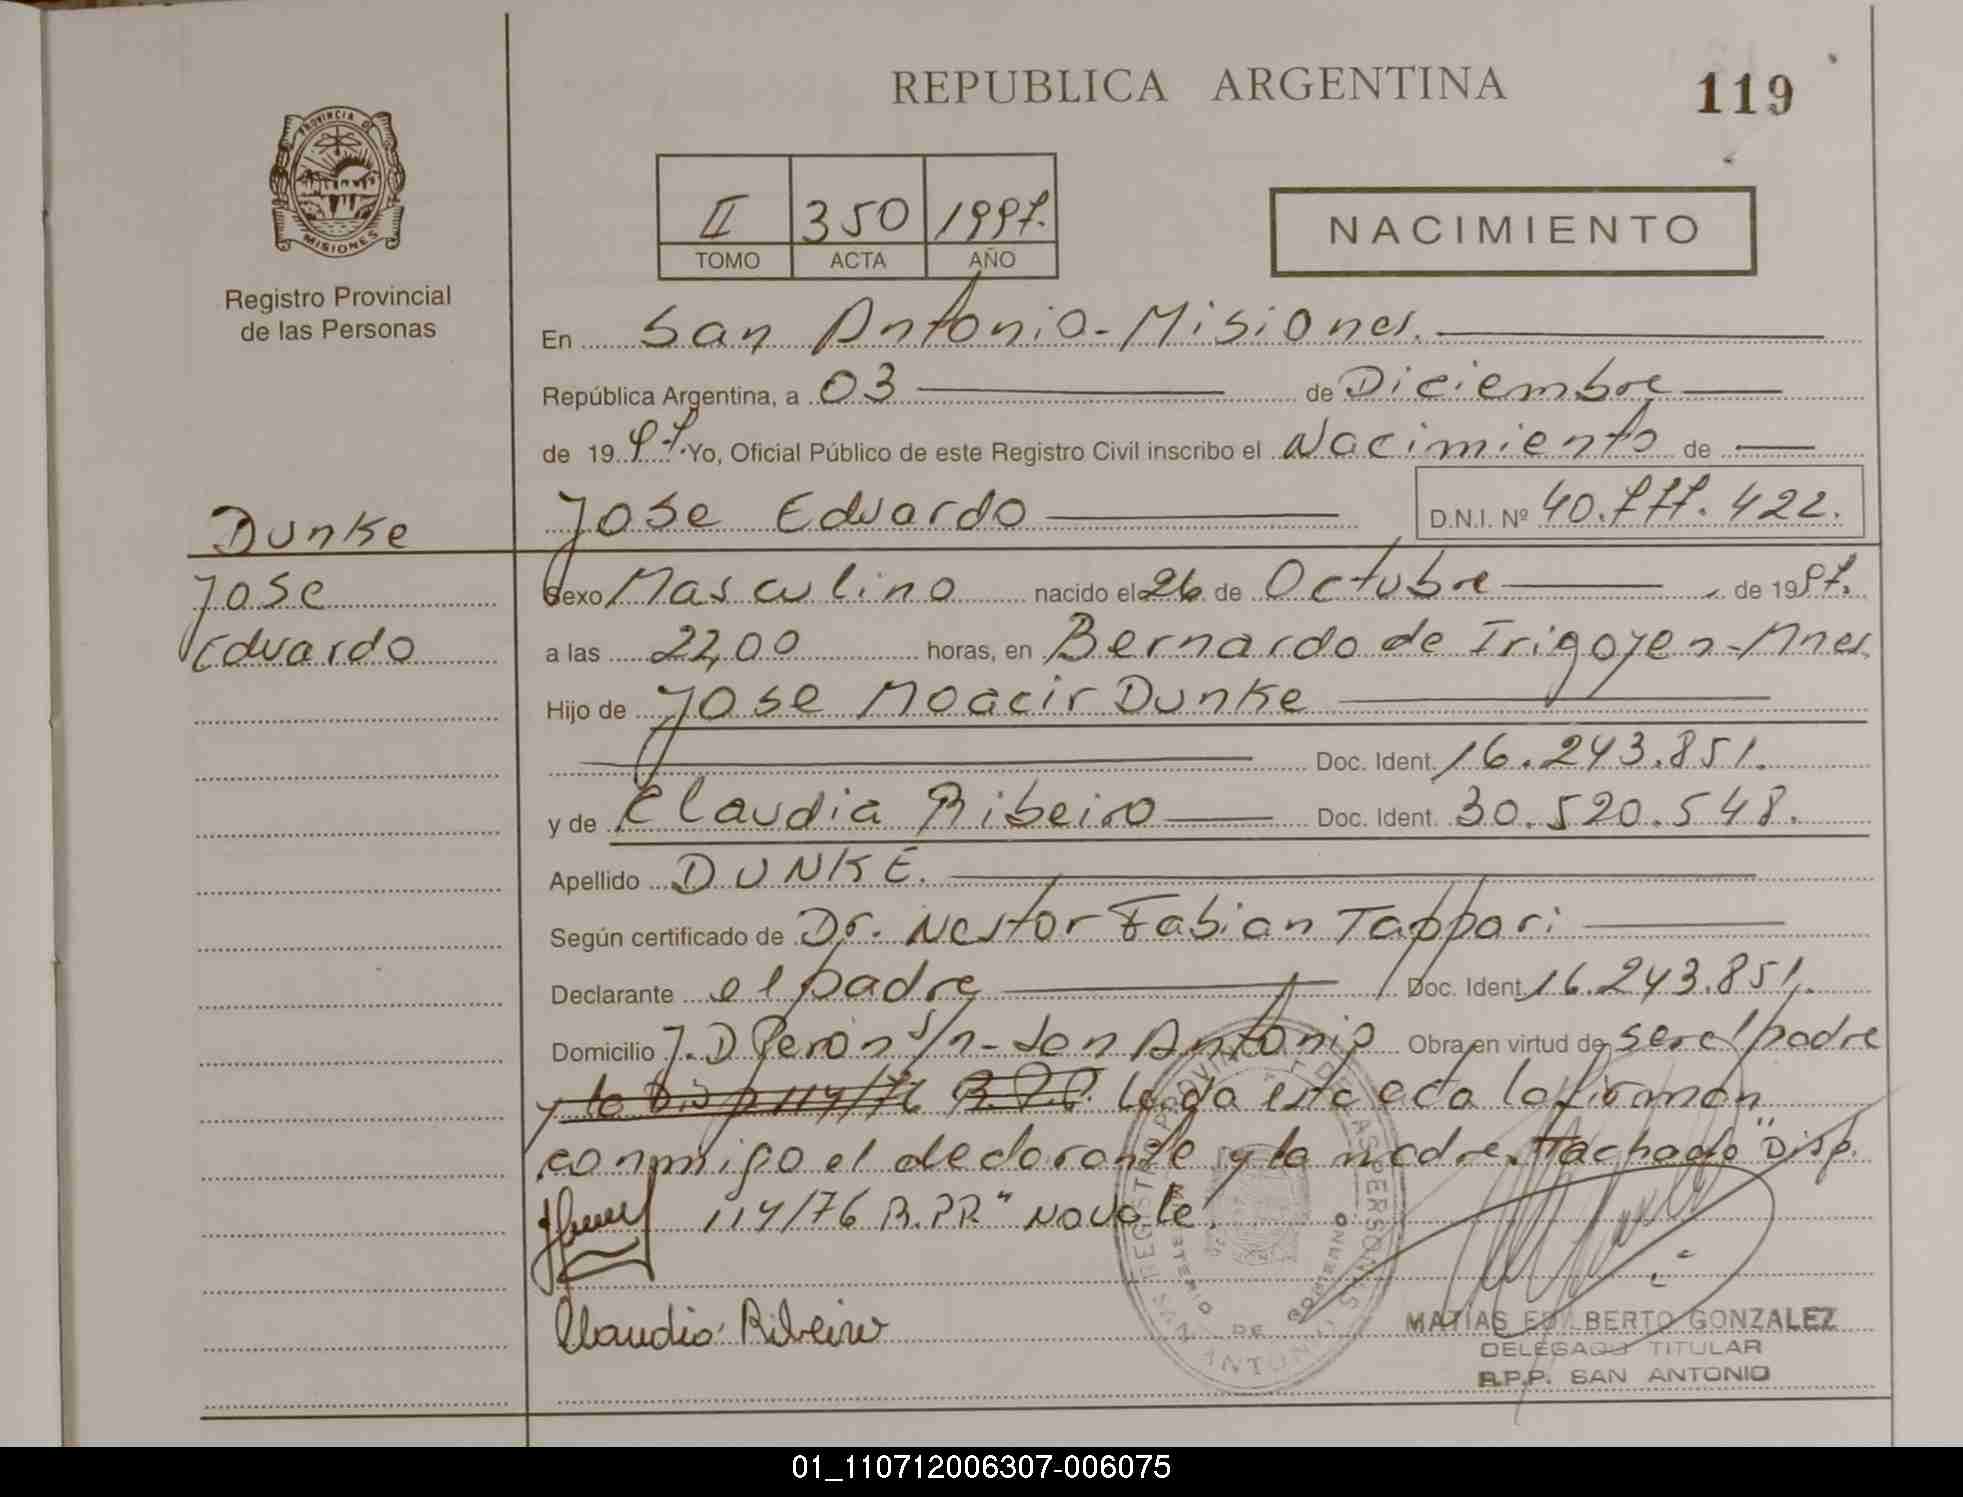 REPUBLICA ARGENTINA
119
PROVINCIA DE
MISIONES
Registro Provincial
de las Personas
II 350 1997.
TOMO ACTA AÑO
NACIMIENTO
En San Antonio - Misiones.
República Argentina, a 03 de Diciembre
de 1997. Yo, Oficial Público de este Registro Civil inscribo el Nacimiento de
Dunke
Jose Eduardo D.N.I. Nº 40.777.422.
Jose
Eduardo
Sexo Masculino nacido el 26 de Octubre de 1997.
a las 22,00 horas, en Bernardo de Irigoyen - Mnes.
Hijo de Jose Moacir Dunke
Doc. Ident. 16.243.851.
y de Claudia Ribeiro Doc. Ident. 30.520.548.
Apellido DUNKE.
Según certificado de Dr. Nestor Fabian Tappari
Declarante el padre Doc. Ident. 16.243.851.
Domicilio J. D Perón S/n - San Antonio Obra en virtud de ser el padre
y la Disp 114/76 R.P.P. leida esta acta la firman
conmigo el declarante y la madre. Tachado "Disp.
114/76 R.PP." No vale.
Claudia Ribeiro
MATIAS EDILBERTO GONZALEZ
DELEGADO TITULAR
R.P.P. SAN ANTONIO
01_110712006307-006075